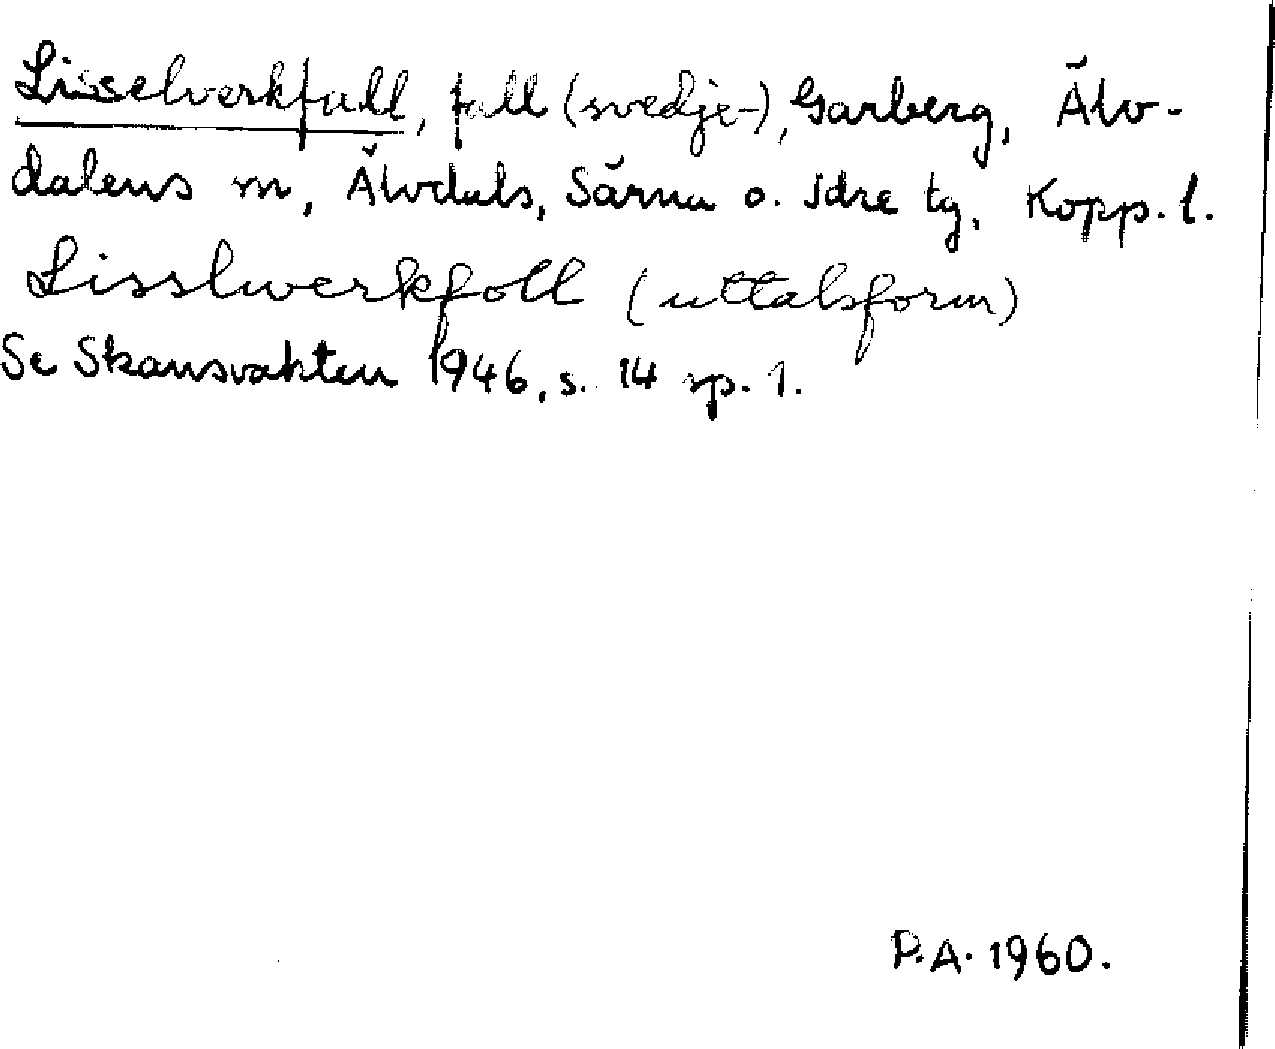 Lisselverkfall, fall (svedje-), Garberg, Älv-
dalens sn, Älvdals, Särna o. Idre tg, Kopp. l.
Lisslwerkfoll (uttalsform)
Se Skansvakten 1946, s. 14 sp. 1.
P.A. 1960.